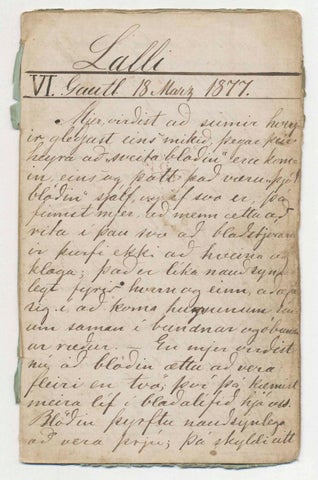 Lalli
VI. Gautl 18 Marz 1877.
Mjer virdist að sumir
ir glejast eins mikið, þegar þeir
heyra að "sveita blöðin" eru kom-
in, eins og þótt það væru "þjóð
blöðin" sjálf, og ef svo er, þá
finnst mjer, að menn ætta að
vita í þau svo að
ir þurfi ekki að hvarta og
klaga; það er líka nauðsyn
legt fyrir hvern og einn, að æfa
sig í að koma
um saman í bundnar og óbund
ar ræður. — En mjer virðist
nú að blöðin ætta að vera
fleiri en tvö; því þá kemur
meira líf í blaðalífið hjá oss.
Blöðin þyrftu nauðsynlega
að vera þrjú; þá skyldi eitt